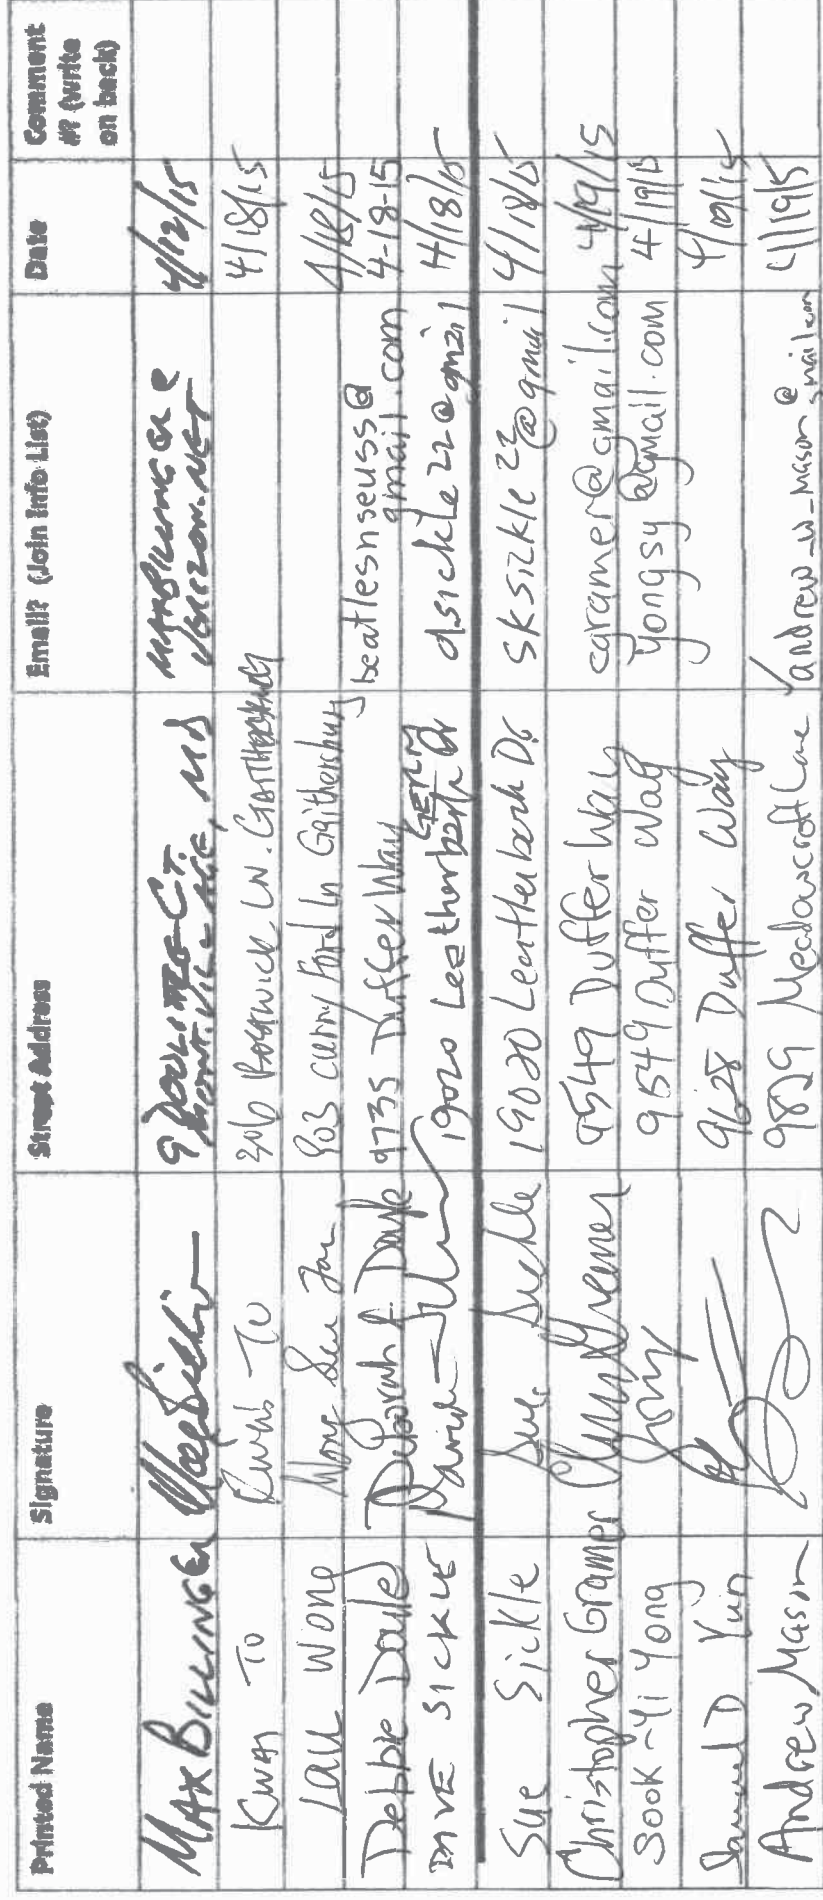 Printed Name Signature Street Address Email? (Join Info List) Date Comment #? (write on back)
MAX BILLINGER 9 DOOLITTLE CT. MONT. VILLAGE, MD MAXBILLINGER@ VERIZON.NET 4/12/15
KWAN TO Kwan To 306 BOSTWICK LN. GAITHERSBURG 4/18/15
LAU WONG Wong Lau 903 Curry Ford Ln Gaithersburg 4/18/15
Debbie Doyle Deborah F. Doyle 9735 Duffer Way beatlesnseuss@gmail.com 4-18-15
DAVE SICKLE David 19020 Leatherbark Dr GERM dsickle22@gmail 4/18/15
Sue Sickle Sue Sickle 19020 Leatherbark Dr sksickle22@gmail 4/18/15
Christopher Gramer 9549 Duffer Way cgramer@gmail.com 4/19/15
Sook-Yi Yong Yong 9549 Duffer Way yongsy@gmail.com 4/19/15
Samuel D Yun 9628 Duffer Way 4/19/15
Andrew Mason 9829 Meadowcroft Lane andrew_w_mason@gmail.com 4/19/15